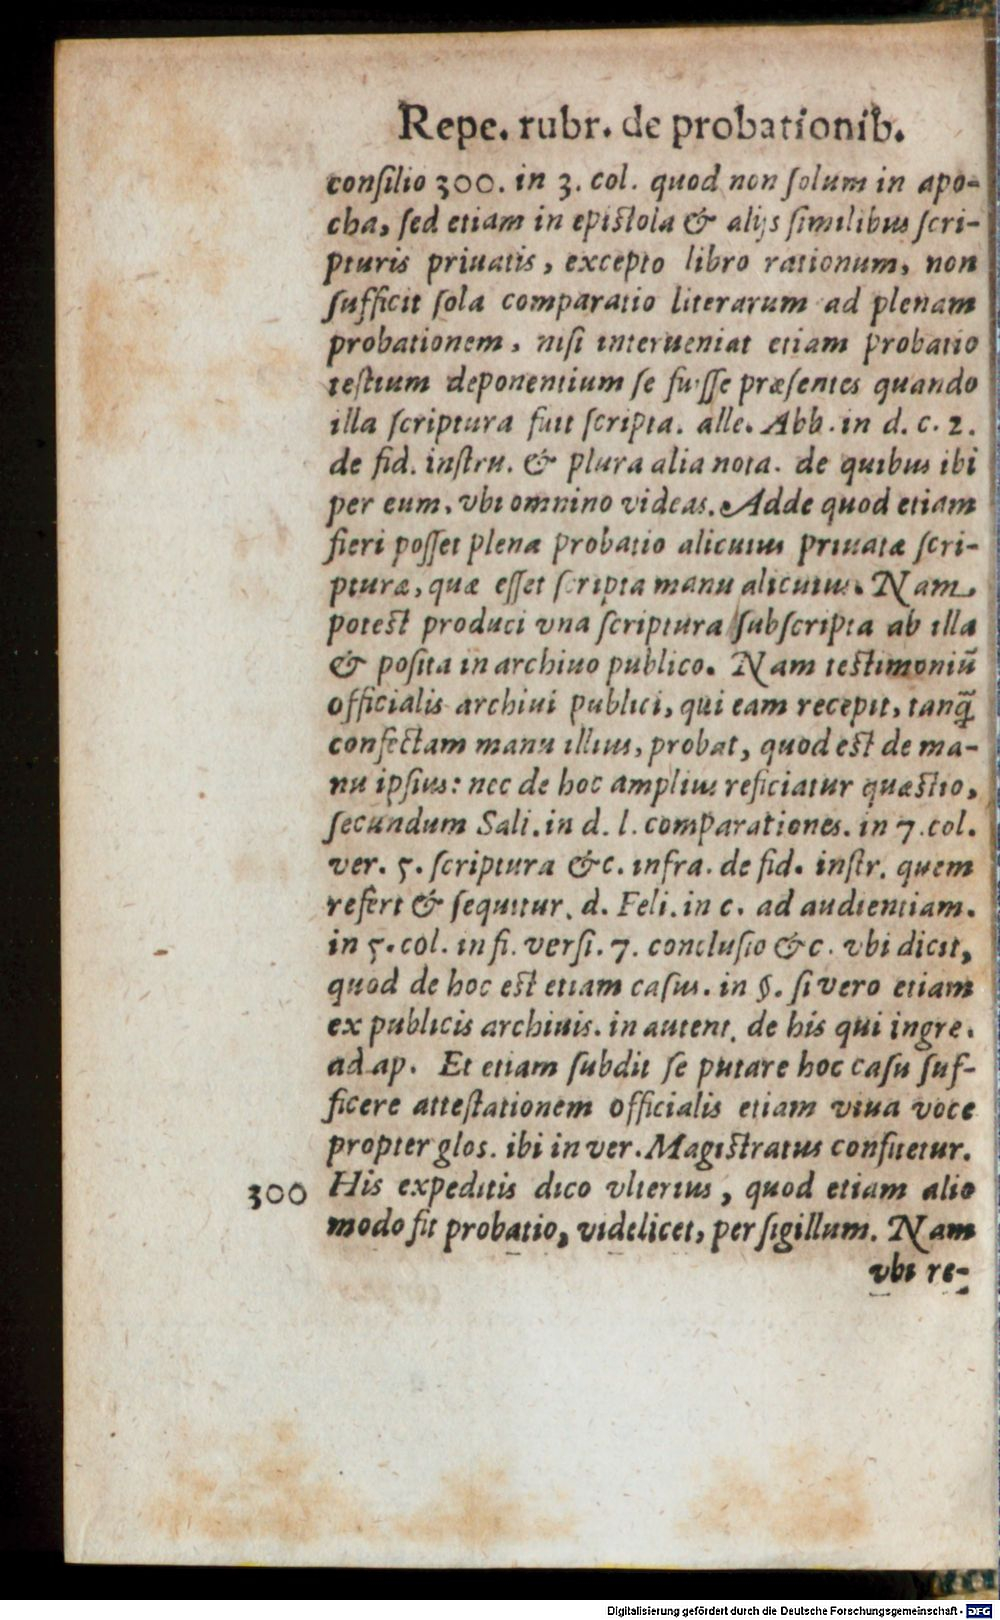 Repe. rubr. de probationib.
consilio 300. in 3. col. quod non solum in apo-
cha, sed etiam in epistola & alijs similibus scri-
pturis priuatis, excepto libro rationum, non
sufficit sola comparatio literarum ad plenam
probationem, nisi interueniat etiam probatio
testium deponentium se fuisse præsentes quando
illa scriptura fuit scripta. alle. Abb. in d. c. 2.
de fid. instru. & plura alia nota. de quibus ibi
per eum, vbi omnino videas. Adde quod etiam
fieri posset plena probatio alicuius priuatæ scri-
pturæ, quæ esset scripta manu alicuius. Nam,
potest produci vna scriptura subscripta ab illa
& posita in archiuo publico. Nam testimoniũ
officialis archiui publici, qui eam recepit, tanq̃
confectam manu illius, probat, quod est de ma-
nu ipsius: nec de hoc amplius reficiatur quæstio,
secundum Sali. in d. l. comparationes. in 7. col.
ver. 5. scriptura &c. infra. de fid. instr. quem
refert & sequitur. d. Feli. in c. ad audientiam.
in 5. col. in fi. versi. 7. conclusio &c. vbi dicit,
quod de hoc est etiam casus. in §. si vero etiam
ex publicis archiuis. in autent. de his qui ingre.
ad ap. Et etiam subdit se putare hoc casu suf-
ficere attestationem officialis etiam viua voce
propter glos. ibi in ver. Magistratus confitetur.
300 His expeditis dico vlterius, quod etiam alio
modo fit probatio, videlicet, per sigillum. Nam
vbi re-
Digitalisierung gefördert durch die Deutsche Forschungsgemeinschaft - DFG